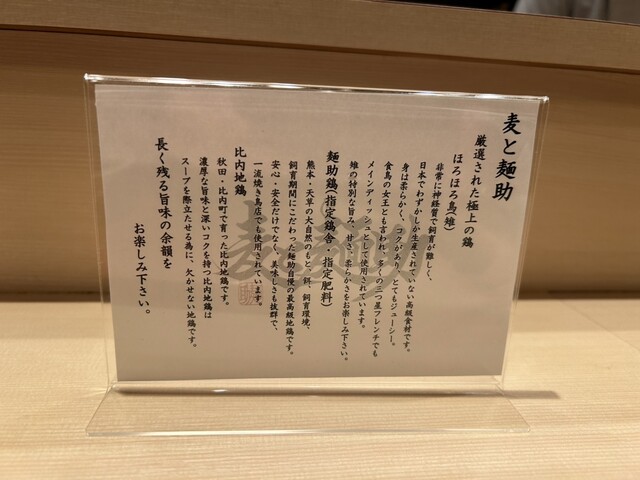 麦と麺助
厳選された極上の鶏
ほろほろ鳥(雉)
非常に神経質で飼育が難しく、
日本でわずかしか生産されていない高級食材です。
身は柔らかく、コクがあり、とてもジューシー。
食鳥の女王とも言われ、多くの三つ星フレンチでも
メインディッシュとして使用されています。
雉の特別な旨み、甘さ、柔らかさをお楽しみ下さい。
麺助鶏(指定鶏舎・指定肥料)
熊本・天草の大自然のもと、餌、飼育環境、
飼育期間にこだわった麺助自慢の最高級地鶏です。
安心・安全だけでなく、美味しさも抜群で、
一流焼き鳥店でも使用されています。
比内地鶏
秋田・比内町で育った比内地鶏です。
濃厚な旨味と深いコクを持つ比内地鶏は
スープを際立たせる為に、欠かせない地鶏です。
長く残る旨味の余韻を
お楽しみ下さい。